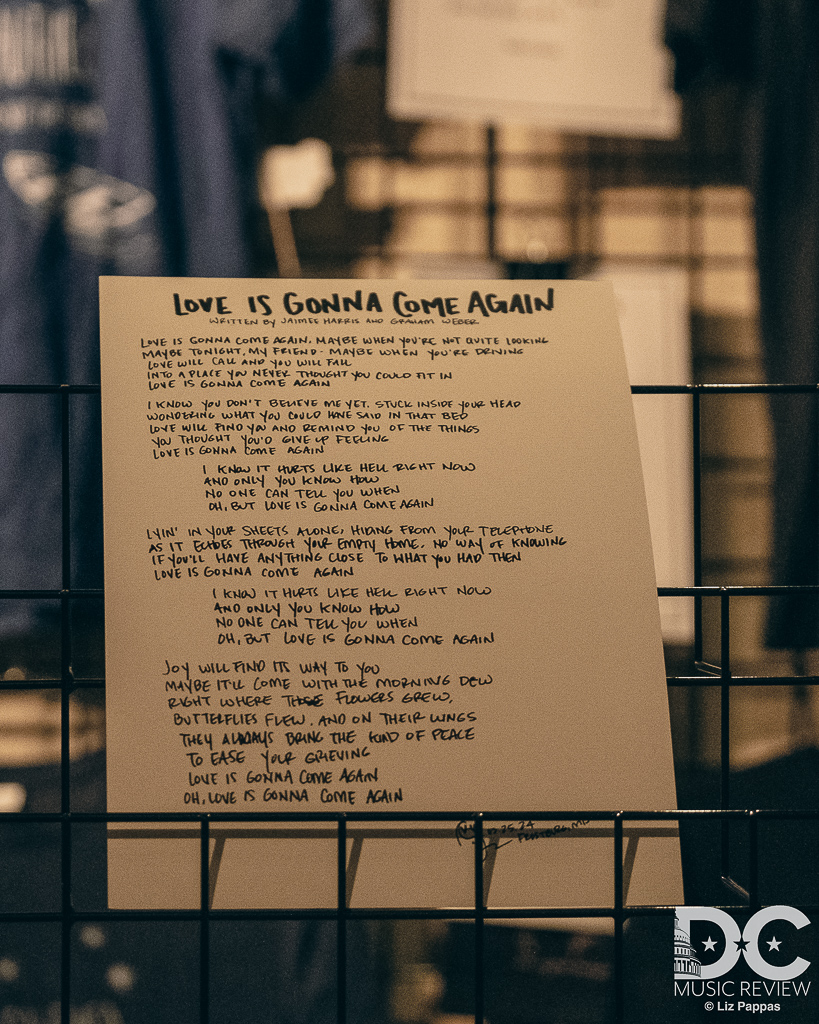 LOVE IS GONNA COME AGAIN
WRITTEN BY JAIMEE HARRIS AND GRAHAM WEBER
LOVE IS GONNA COME AGAIN, MAYBE WHEN YOU'RE NOT QUITE LOOKING
MAYBE TONIGHT, MY FRIEND - MAYBE WHEN YOU'RE DRIVING
LOVE WILL CALL AND YOU WILL FALL
INTO A PLACE YOU NEVER THOUGHT YOU COULD FIT IN
LOVE IS GONNA COME AGAIN
I KNOW YOU DON'T BELIEVE ME YET. STUCK INSIDE YOUR HEAD
WONDERING WHAT YOU COULD HAVE SAID IN THAT BED
LOVE WILL FIND YOU AND REMIND YOU OF THE THINGS
YOU THOUGHT YOU'D GIVE UP FEELING
LOVE IS GONNA COME AGAIN
I KNOW IT HURTS LIKE HELL RIGHT NOW
AND ONLY YOU KNOW HOW
NO ONE CAN TELL YOU WHEN
OH, BUT LOVE IS GONNA COME AGAIN
LYIN' IN YOUR SHEETS ALONE, HIDING FROM YOUR TELEPHONE
AS IT ECHOES THROUGH YOUR EMPTY HOME. NO WAY OF KNOWING
IF YOU'LL HAVE ANYTHING CLOSE TO WHAT YOU HAD THEN
LOVE IS GONNA COME AGAIN
I KNOW IT HURTS LIKE HELL RIGHT NOW
AND ONLY YOU KNOW HOW
NO ONE CAN TELL YOU WHEN
OH, BUT LOVE IS GONNA COME AGAIN
JOY WILL FIND ITS WAY TO YOU
MAYBE IT'LL COME WITH THE MORNING DEW
RIGHT WHERE THOSE FLOWERS GREW,
BUTTERFLIES FLEW. AND ON THEIR WINGS
THEY ALWAYS BRING THE KIND OF PEACE
TO EASE YOUR GRIEVING
LOVE IS GONNA COME AGAIN
OH, LOVE IS GONNA COME AGAIN
25.24
DC
MUSIC REVIEW
© Liz Pappas